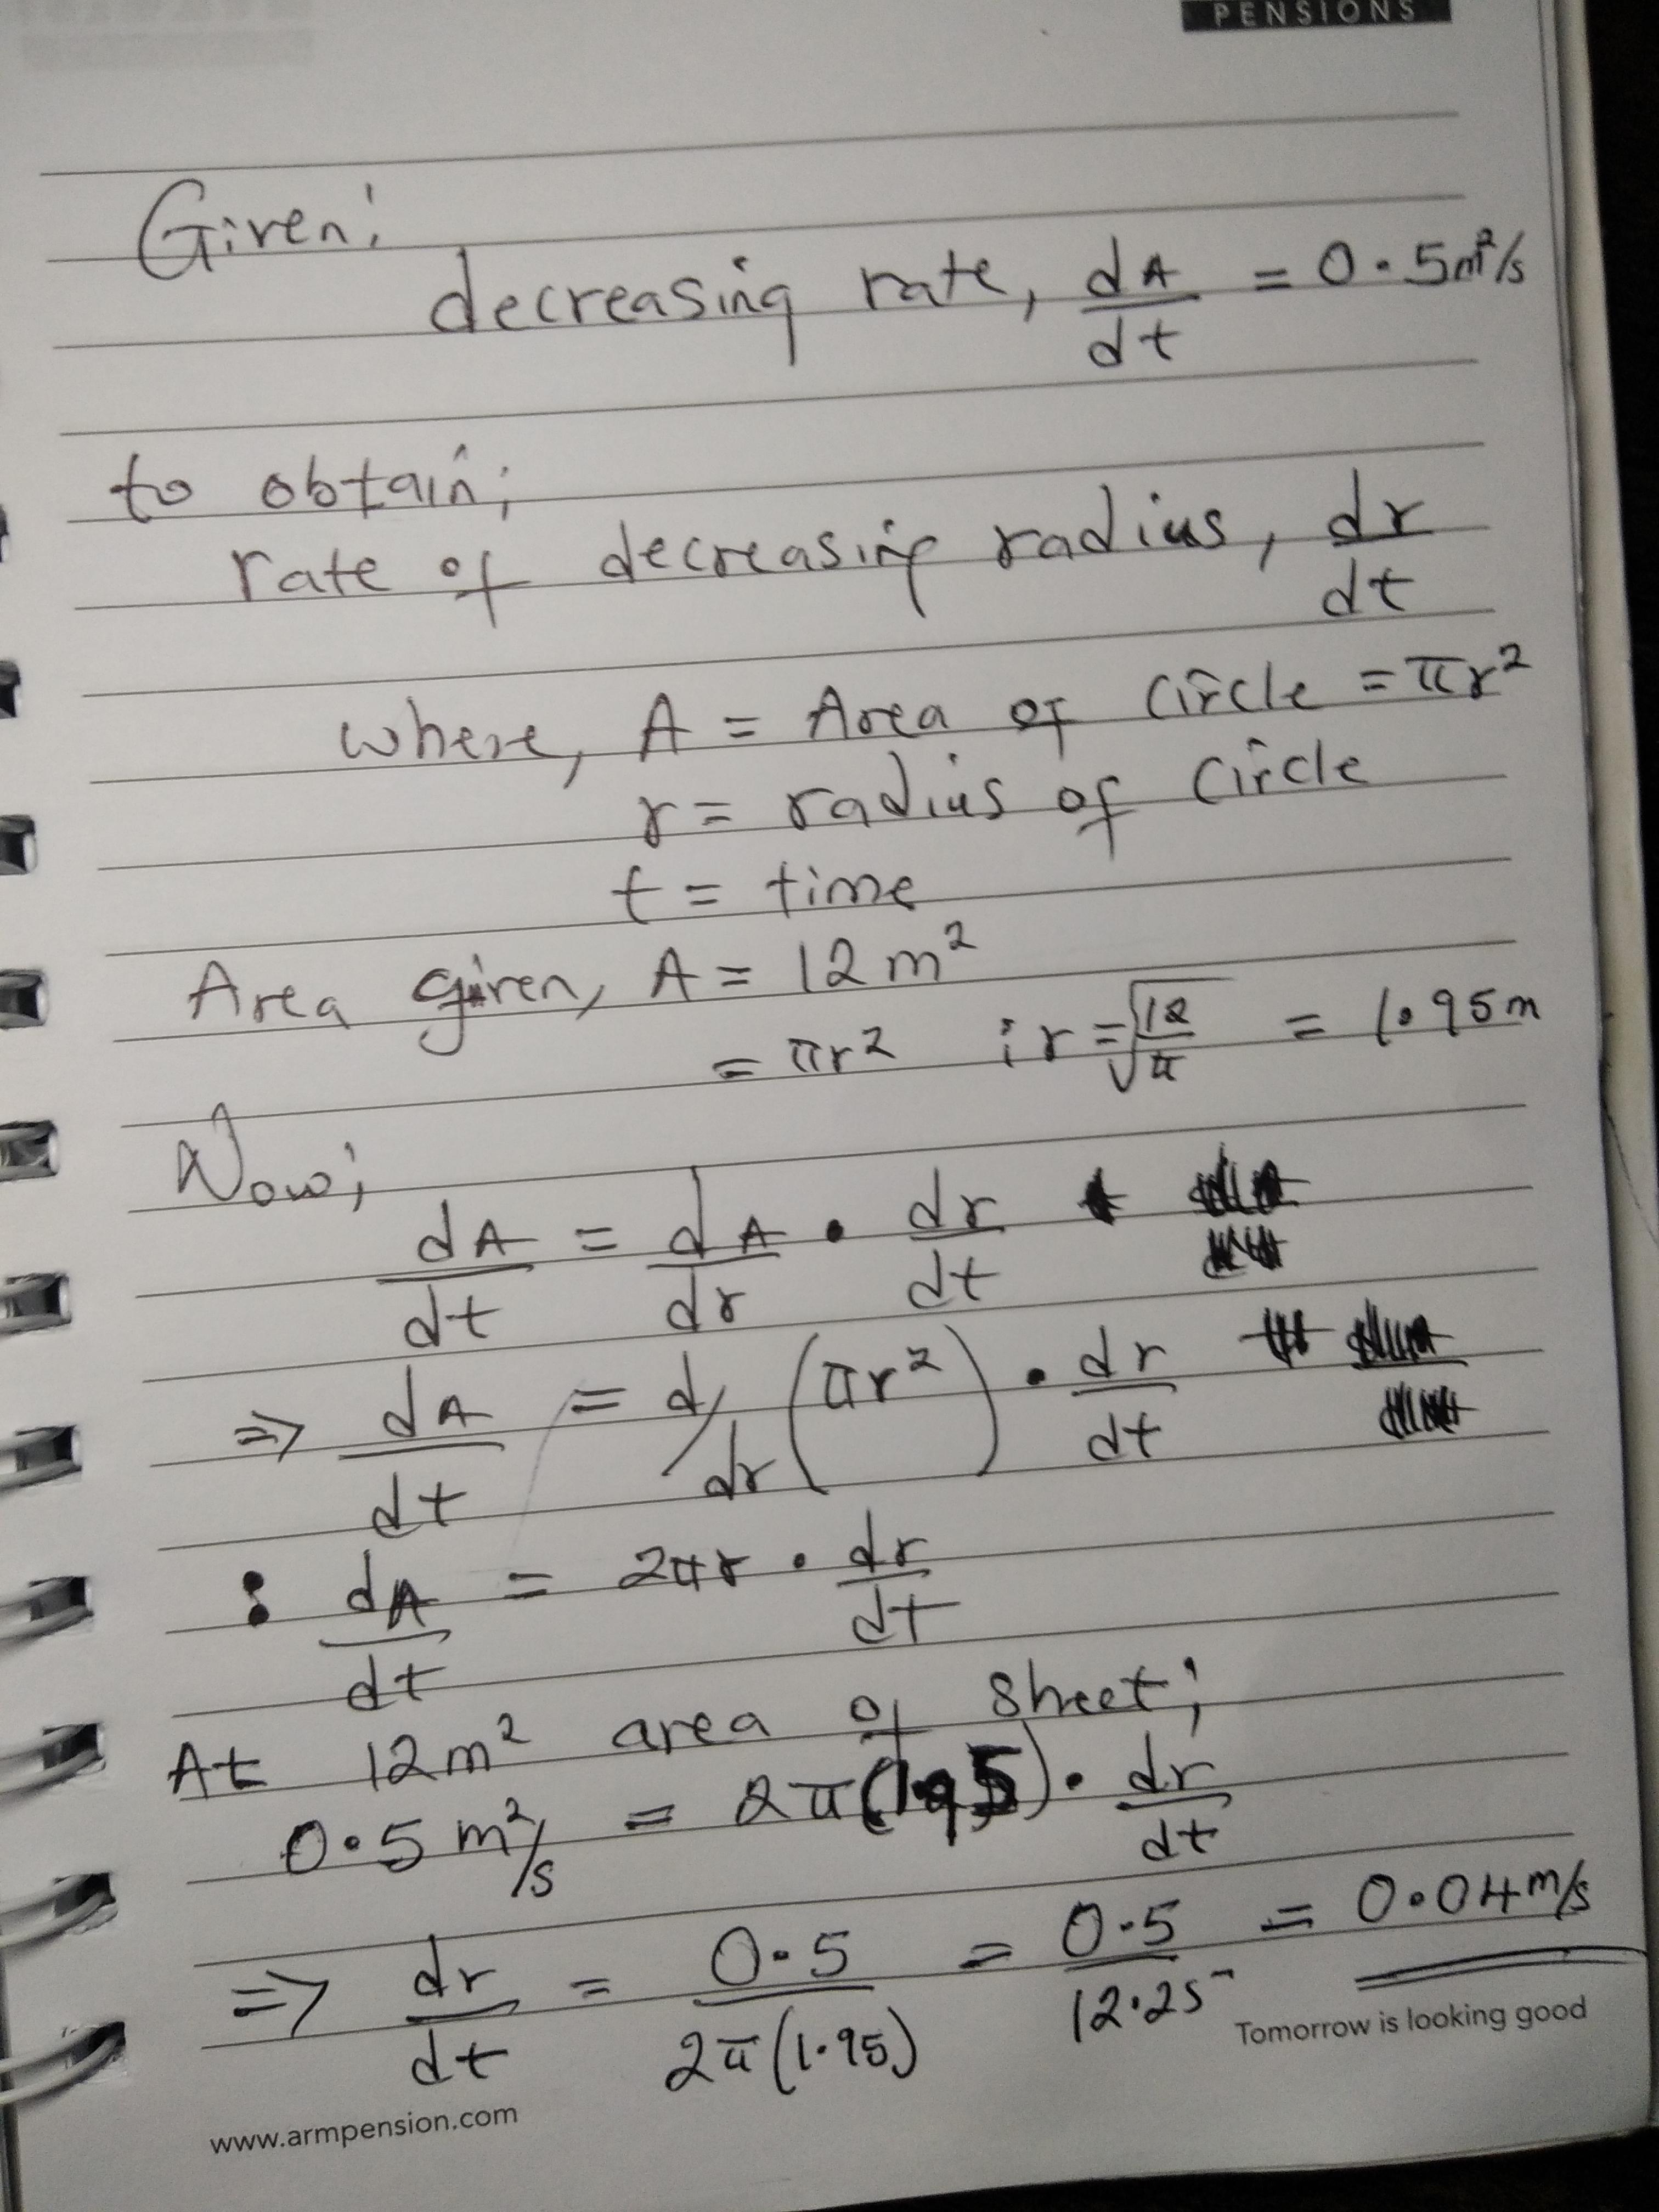 PENSIONS
Given;
decreasing rate, dA/dt = 0.5m²/s
to obtain;
rate of decreasing radius, dr/dt
where, A = Area of circle = πr²
r = radius of circle
t = time
Area given, A = 12m²
= πr² ; r = √(12/π) = 1.95m
Now;
dA/dt = dA/dr · dr/dt
⇒ dA/dt = d/dr (πr²) · dr/dt
: dA/dt = 2πr · dr/dt
At 12m² area of sheet;
0.5m²/s = 2π(1.95) · dr/dt
⇒ dr/dt = 0.5/2π(1.95) = 0.5/12.25 = 0.04m/s
Tomorrow is looking good
www.armpension.com